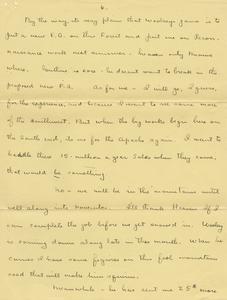 6.
By the way, its very plain that Woolsey's game is to
put a new F.A. on this Forest and put me on Recon-
naissance work next summer - heaven only knows
where. Guthrie is sore - he doesnt want to break in the
proposed new F.A. As for me - I will go, I guess,
for the experience, and because I want to see some more
of the Southwest. But when the big works begin here on
the South end, its me for the Apache again. I want to
handle those 15-million a year sales when they come,
that would be something
No - we will be in the mountains until
well along into November. I'll thank Heaven if I
can complete the job before we get snowed in. Woolsey
is coming down along late in this month. When he
comes I have some figures on this fool mountain
road that will make him squirm.
Meanwhile - he has sent me 25# more